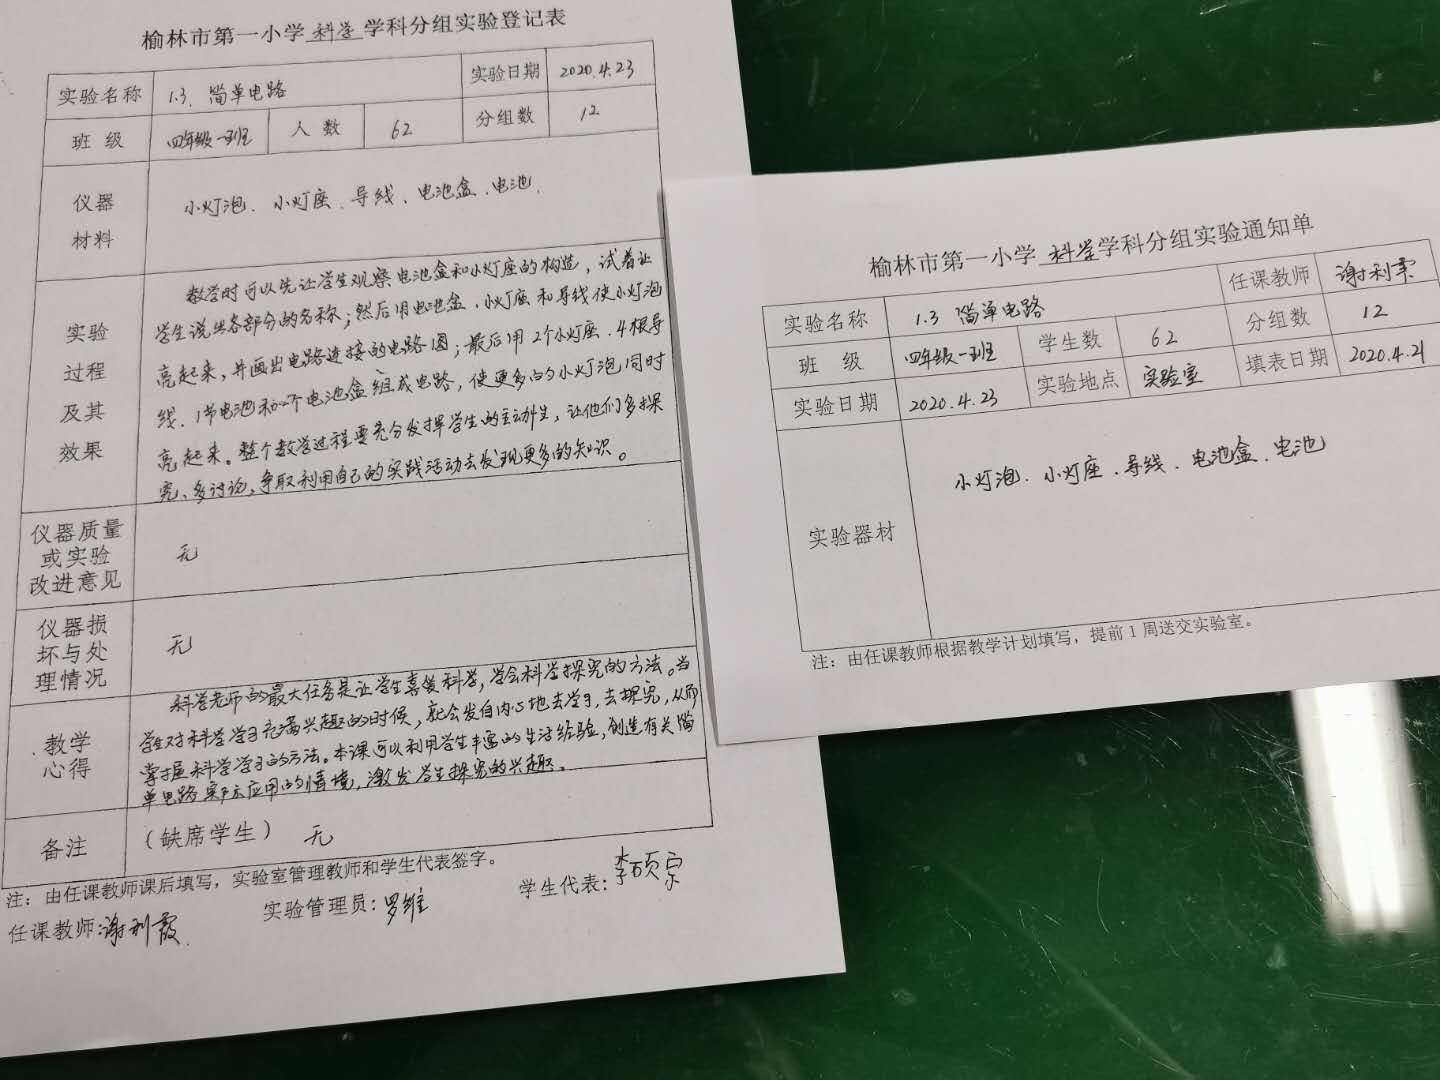 榆林市第一小学 科学 学科分组实验登记表
实验名称 1.3、简单电路 实验日期 2020.4.23
班 级 四年级一班 人 数 62 分组数 12
仪器材料 小灯泡、小灯座、导线、电池盒、电池.
实验过程及其效果
教学时可以先让学生观察电池盒和小灯座的构造，试着让
学生说出各部分的名称；然后用电池盒、小灯座和导线使小灯泡
亮起来，并画出电路连接的电路图；最后用2个小灯座、4根导
线、1节电池和一个电池盒组成电路，使更多的小灯泡同时
亮起来。整个教学过程要充分发挥学生的主动性，让他们多探
究、多讨论，争取利用自己的实践活动去发现更多的知识。
仪器质量或实验改进意见 无
仪器损坏与处理情况 无
教学心得
科学老师的最大任务是让学生喜爱科学，学会科学探究的方法。当
学生对科学学习充满兴趣的时候，就会发自内心地去学习，去探究，从而
掌握科学学习的方法。本课可以利用学生丰富的生活经验，创造有关简
单电路实际应用的情境，激发学生探究的兴趣。
备注 （缺席学生） 无
注：由任课教师课后填写，实验室管理教师和学生代表签字。
任课教师:谢利霞 实验管理员:罗维 学生代表:李硕宗
榆林市第一小学 科学 学科分组实验通知单
实验名称 1.3 简单电路 任课教师 谢利霞
班 级 四年级一班 学生数 62 分组数 12
实验日期 2020.4.23 实验地点 实验室 填表日期 2020.4.21
实验器材 小灯泡、小灯座、导线、电池盒、电池
注：由任课教师根据教学计划填写，提前1周送交实验室。